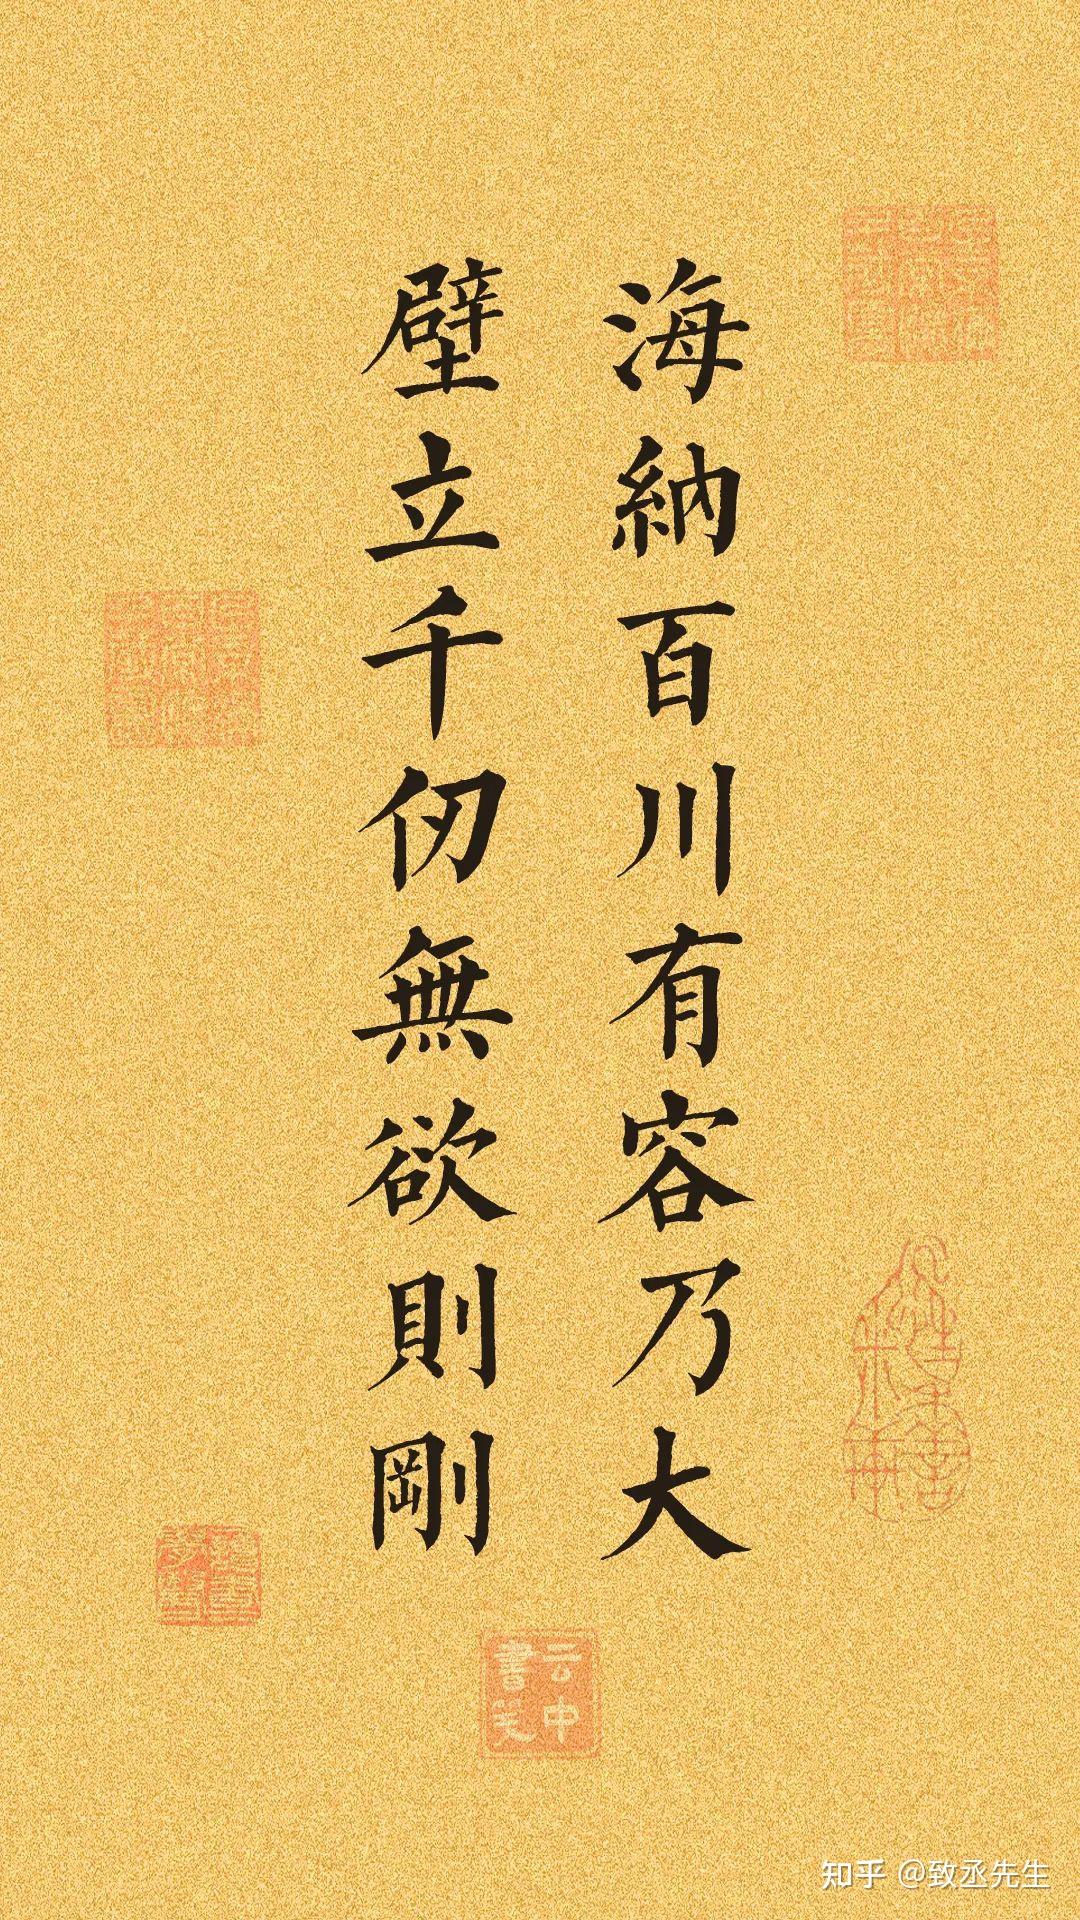 海納百川有容乃大
壁立千仞無欲則剛
云中
書笑
知乎 @致丞先生